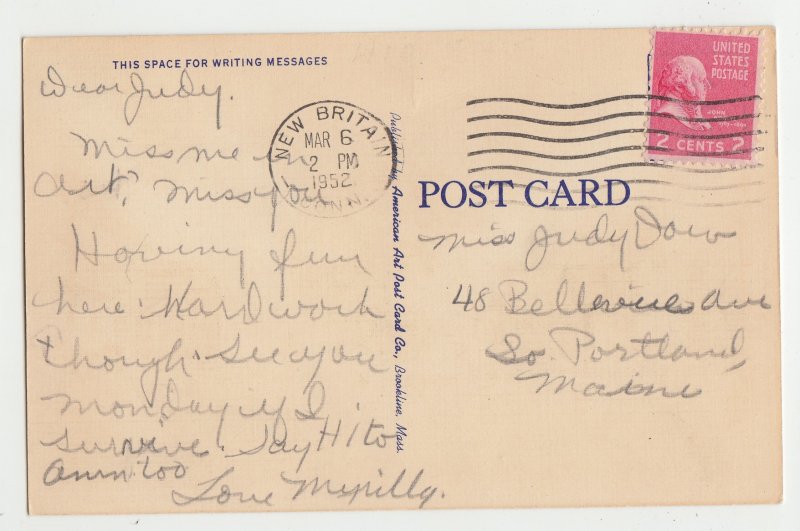 THIS SPACE FOR WRITING MESSAGES
Dear Judy.
Miss me in
art, miss you
Having fun
here. Hard work
though. See you
Monday if I
survive. Say Hi to
Ann too
Love Merilly.
NEW BRITAIN
MAR 6
2 PM
1952
CONN.
Published by American Art Post Card Co., Brookline, Mass.
UNITED
STATES
POSTAGE
JOHN
2 CENTS 2
POST CARD
Miss Judy Dow
48 Bellevue Ave
So. Portland,
Maine